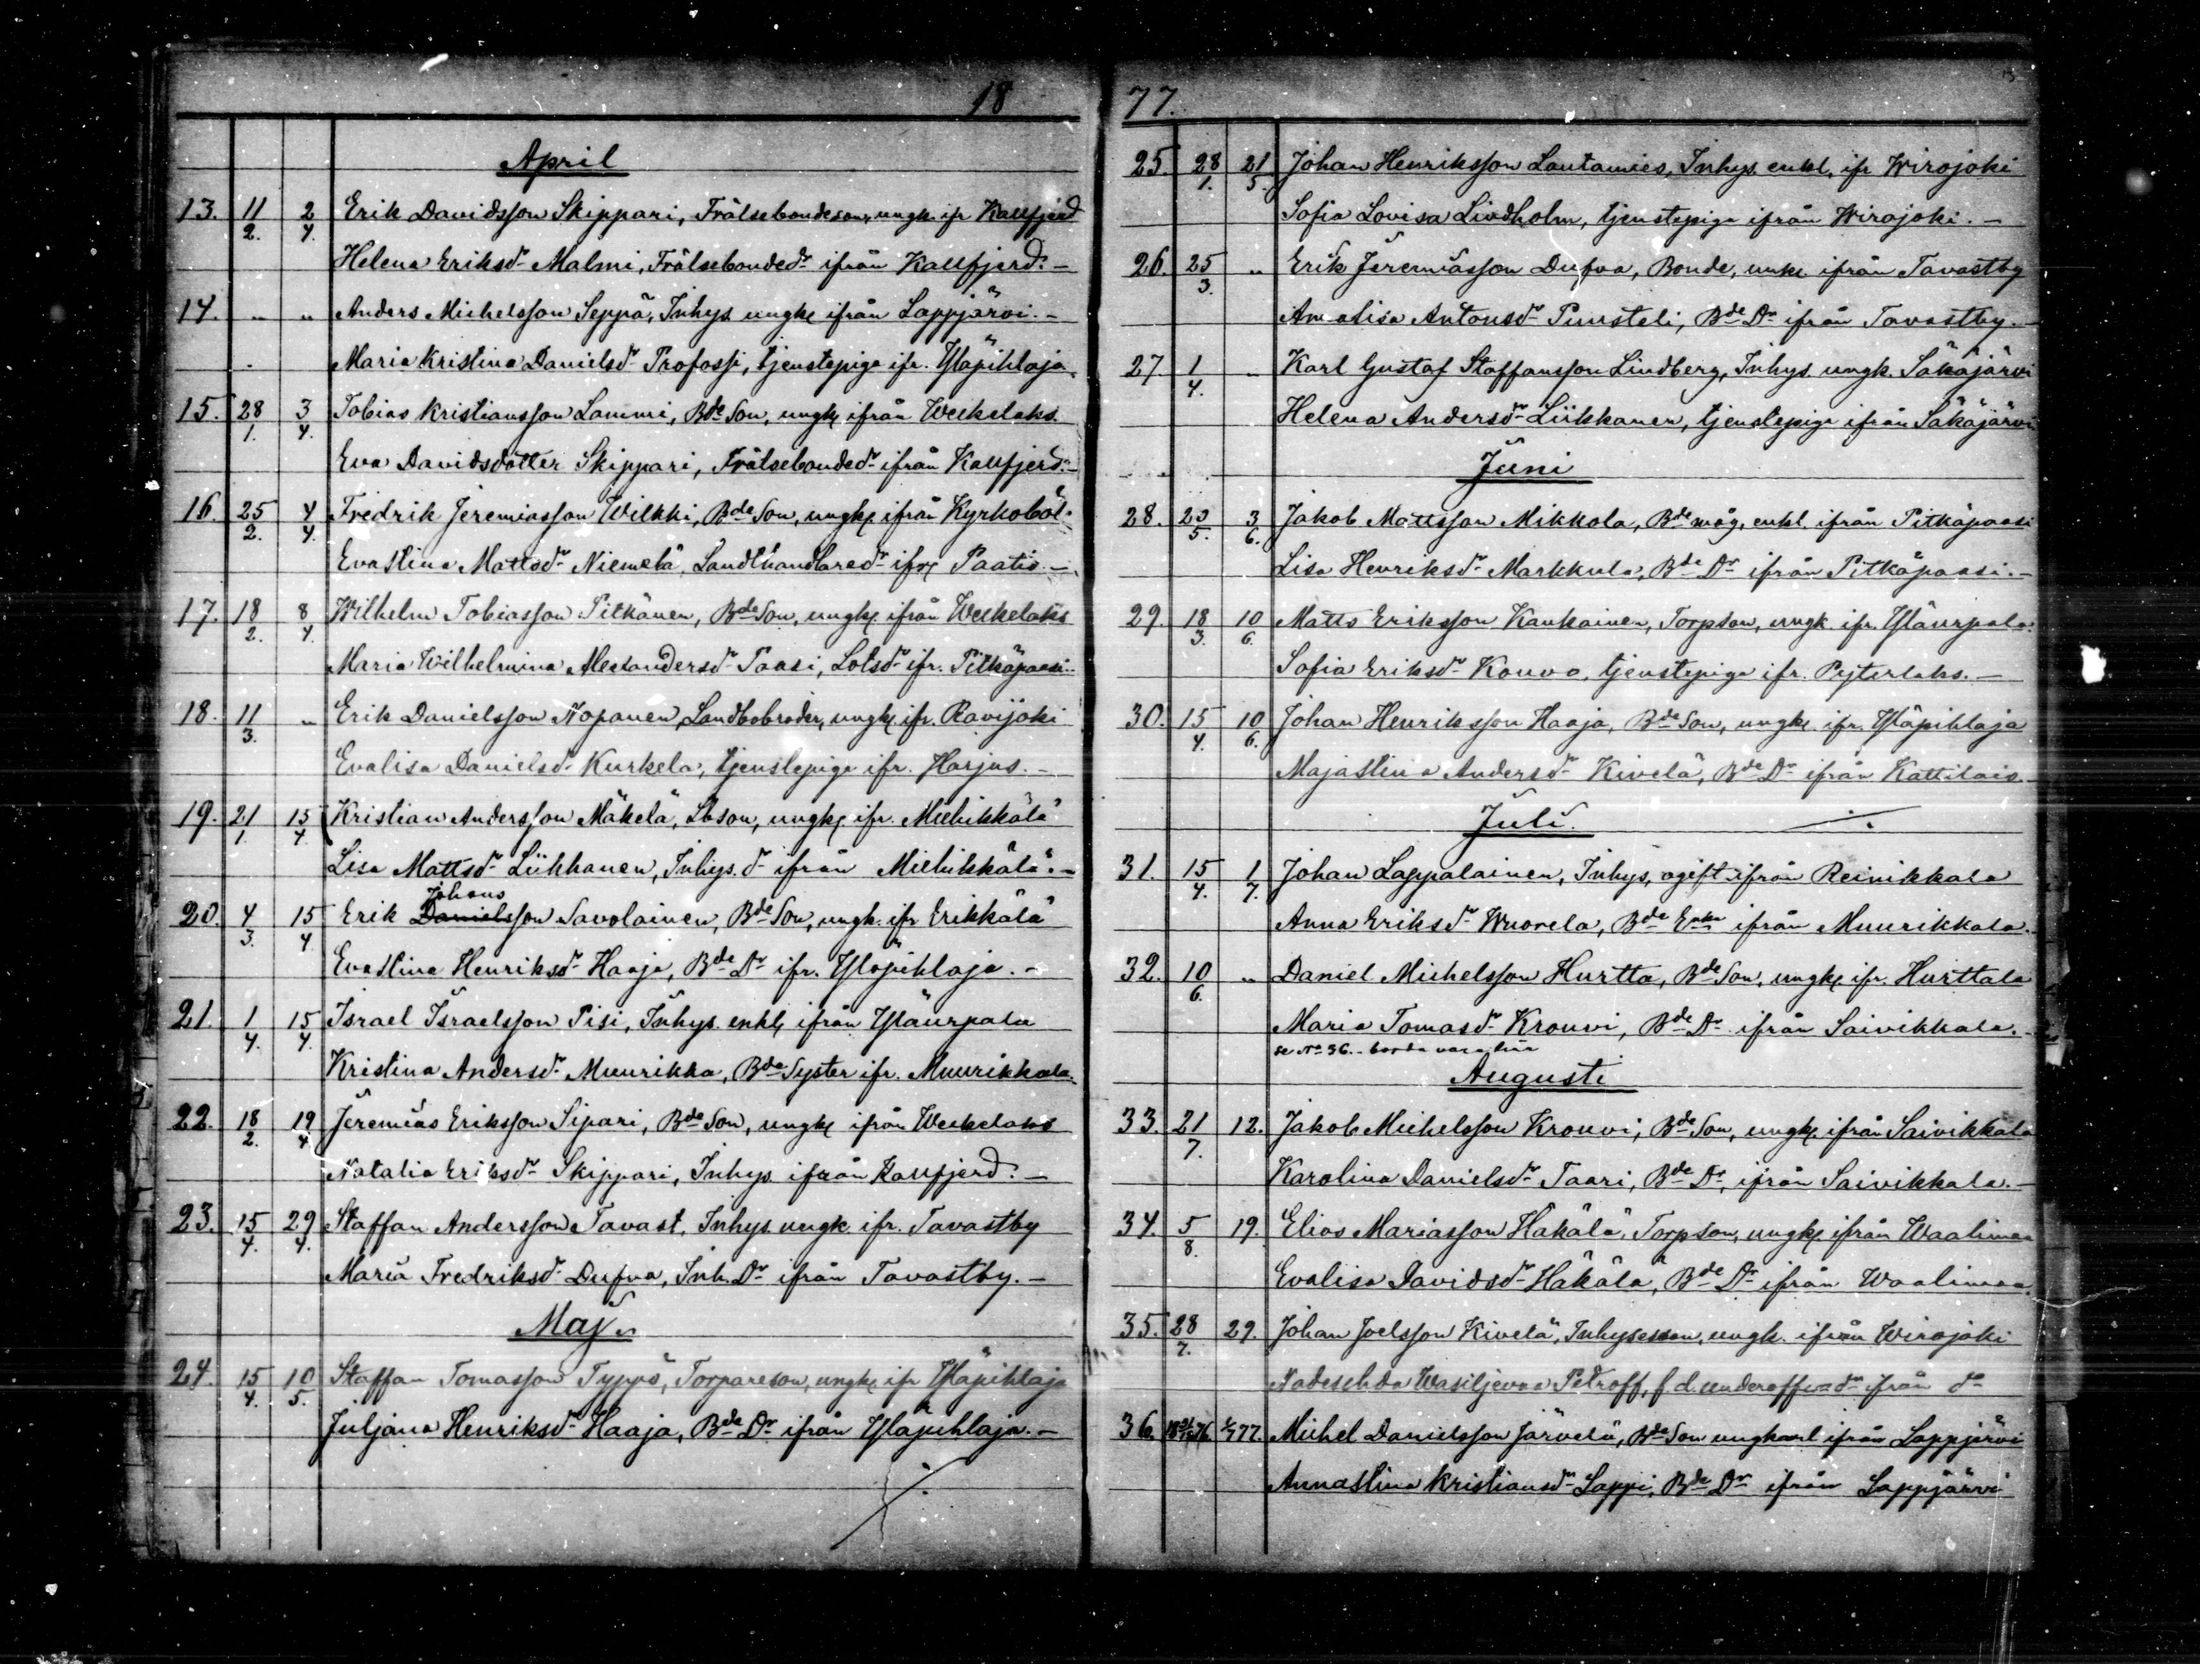 18
April
13. 11/2. 2/4. Erik Davidsson Skippari, Frälsebondeson, ungk. ifr Kallfjerd
Helena Eriksdr Malmi, Frälsebondedr ifrån Kallfjerd. –
14. „ „ Anders Michelsson Seppä, Inhys. ungk ifrån Lappjärvi. –
Maria Kristina Danielsdr Profossi, tjenstepiga ifr. Yläpihlaja.
15. 28/1. 3/4. Tobias Kristiansson Lammi, Bde Son, ungk ifrån Weckelaks.
Eva Davidsdotter Skippari, Frälsebondedr ifrån Kallfjerd. –
16. 25/2. 4/4. Fredrik Jeremiasson Wilkki, Bde Son, ungk. ifrån Kyrkoböl.
Evastina Mattsdr Niemelä, Landthandlaredr ifrå Paatio. –
17. 18/2. 8/4. Wilhelm Tobiasson Pitkänen, Bde Son, ungk. ifrån Weckelaks
Maria Wilhelmina Alexandersdr Paasi, Lotsdr ifr. Pitkäpaasi. –
18. 11/3. „ Erik Danielsson Nopanen, Landbobroder, ungk. ifr. Ravijoki
Evalisa Danielsdr Kurkela, tjenstepiga ifr. Harjus. –
19. 21/1. 15/4. Kristian Andersson Mäkelä, Lbson, ungk. ifr. Miehikkälä
Lisa Mattsdr Liikkanen, Inhys. dr ifrån Miehikkälä. –
Johans
20. 4/3. 15/4. Erik Danielsson Savolainen, Bde Son, ungk. ifr Erikkälä
Evastina Henriksdr Haaja, Bde Dr ifr. Yläpihlaja. –
21. 1/4. 15/4. Israel Israelsson Pisi, Inhys. enkl ifrån Yläurpala
Kristina Andersdr Muurikka, Bde Syster ifr. Muurikkala.
22. 18/2. 19/4. Jeremias Eriksson Sipari, Bde Son, ungk ifrån Weckelaks
Natalia Eriksdr Skippari, Inhys. ifrån Kallfjerd. –
23. 15/4. 29/4. Staffan Andersson Tavast, Inhys. ungk. ifr. Tavastby
Maria Fredriksdr Dufva, Inh. Dr ifrån Tavastby. –
Maj.
24. 15/4. 10/5. Staffan Tomasson Typpö, Torpareson, ungk. ifr Yläpihlaja
Juljana Henriksdr Haaja, Bde Dr ifrån Yläpihlaja. –
77.
25. 28/1. 21/5. Johan Henriksson Lautamies, Inhys. enkl. ifr Wirojoki
Sofia Lovisa Lindholm, tjenstepiga ifrån Wirojoki. –
26. 25/3. „ Erik Jeremiasson Dufva, Bonde, unk. ifrån Tavastby
Annalisa Antonsdr Puusteli, Bde Dr ifrån Tavastby. –
27. 1/4. „ Karl Gustaf Staffansson Lindberg, Inhys. ungk. Säkäjärvi
Helena Andersdr Liikkanen, tjenstepiga ifrån Säkäjärvi
Juni
28. 3/6. Jakob Mattsson Mikkola, Bde måg, enkl. ifrån Pitkäpaasi
Lisa Henriksdr Markkula, Bde Dr ifrån Pitkäpaasi. –
29. 18/3. 10/6. Matts Eriksson Kaukainen, Torpson, ungk. ifr. Yläurpala.
Sofia Eriksdr Kouvo, tjenstepiga ifr. Pyterlaks. –
30. 15/4. 10/6. Johan Henriksson Haaja, Bde Son, ungk. ifr. Yläpihlaja
Majastina Andersdr Kivelä, Bde Dr ifrån Kattilais. –
Juli.
31. 15/4. 1/7. Johan Lappalainen, Inhys, ogift ifrån Reinikkala
Anna Eriksdr Wuorela, Bde Enka ifrån Muurikkala.
32. 10/6. „ Daniel Michelsson Hurtta, Bde Son, ungk. ifr. Hurttala
Maria Tomasdr Krouvi, Bde Dr ifrån Saivikkala. –
se No 36. – borde vara här
Augusti
33. 21/7. 12. Jakob Michelsson Krouvi, Bde Son, ungk. ifrån Saivikkala
Karolina Danielsdr Taari, Bde Dr, ifrån Saivikkala. –
34. 5/8. 19. Elias Mariasson Häkälä, Torpson, ungk. ifrån Waalimaa
Evalisa Davidsdr Häkälä, Bde Dr ifrån Waalimaa.
35. 28/7. 29. Johan Joelsson Kivelä, Inhyseson, ungk. ifrån Wirojoki
Nadeschda Wasiljevna Petroff, f.d. underoffradr ifrån do
36. 1/7 77. Michel Danielsson Järvelä, Bde Son ungkarl ifrån Lappjärvi
Annastina Kristiansdr Lappi, Bde Dr ifrån Lappjärvi